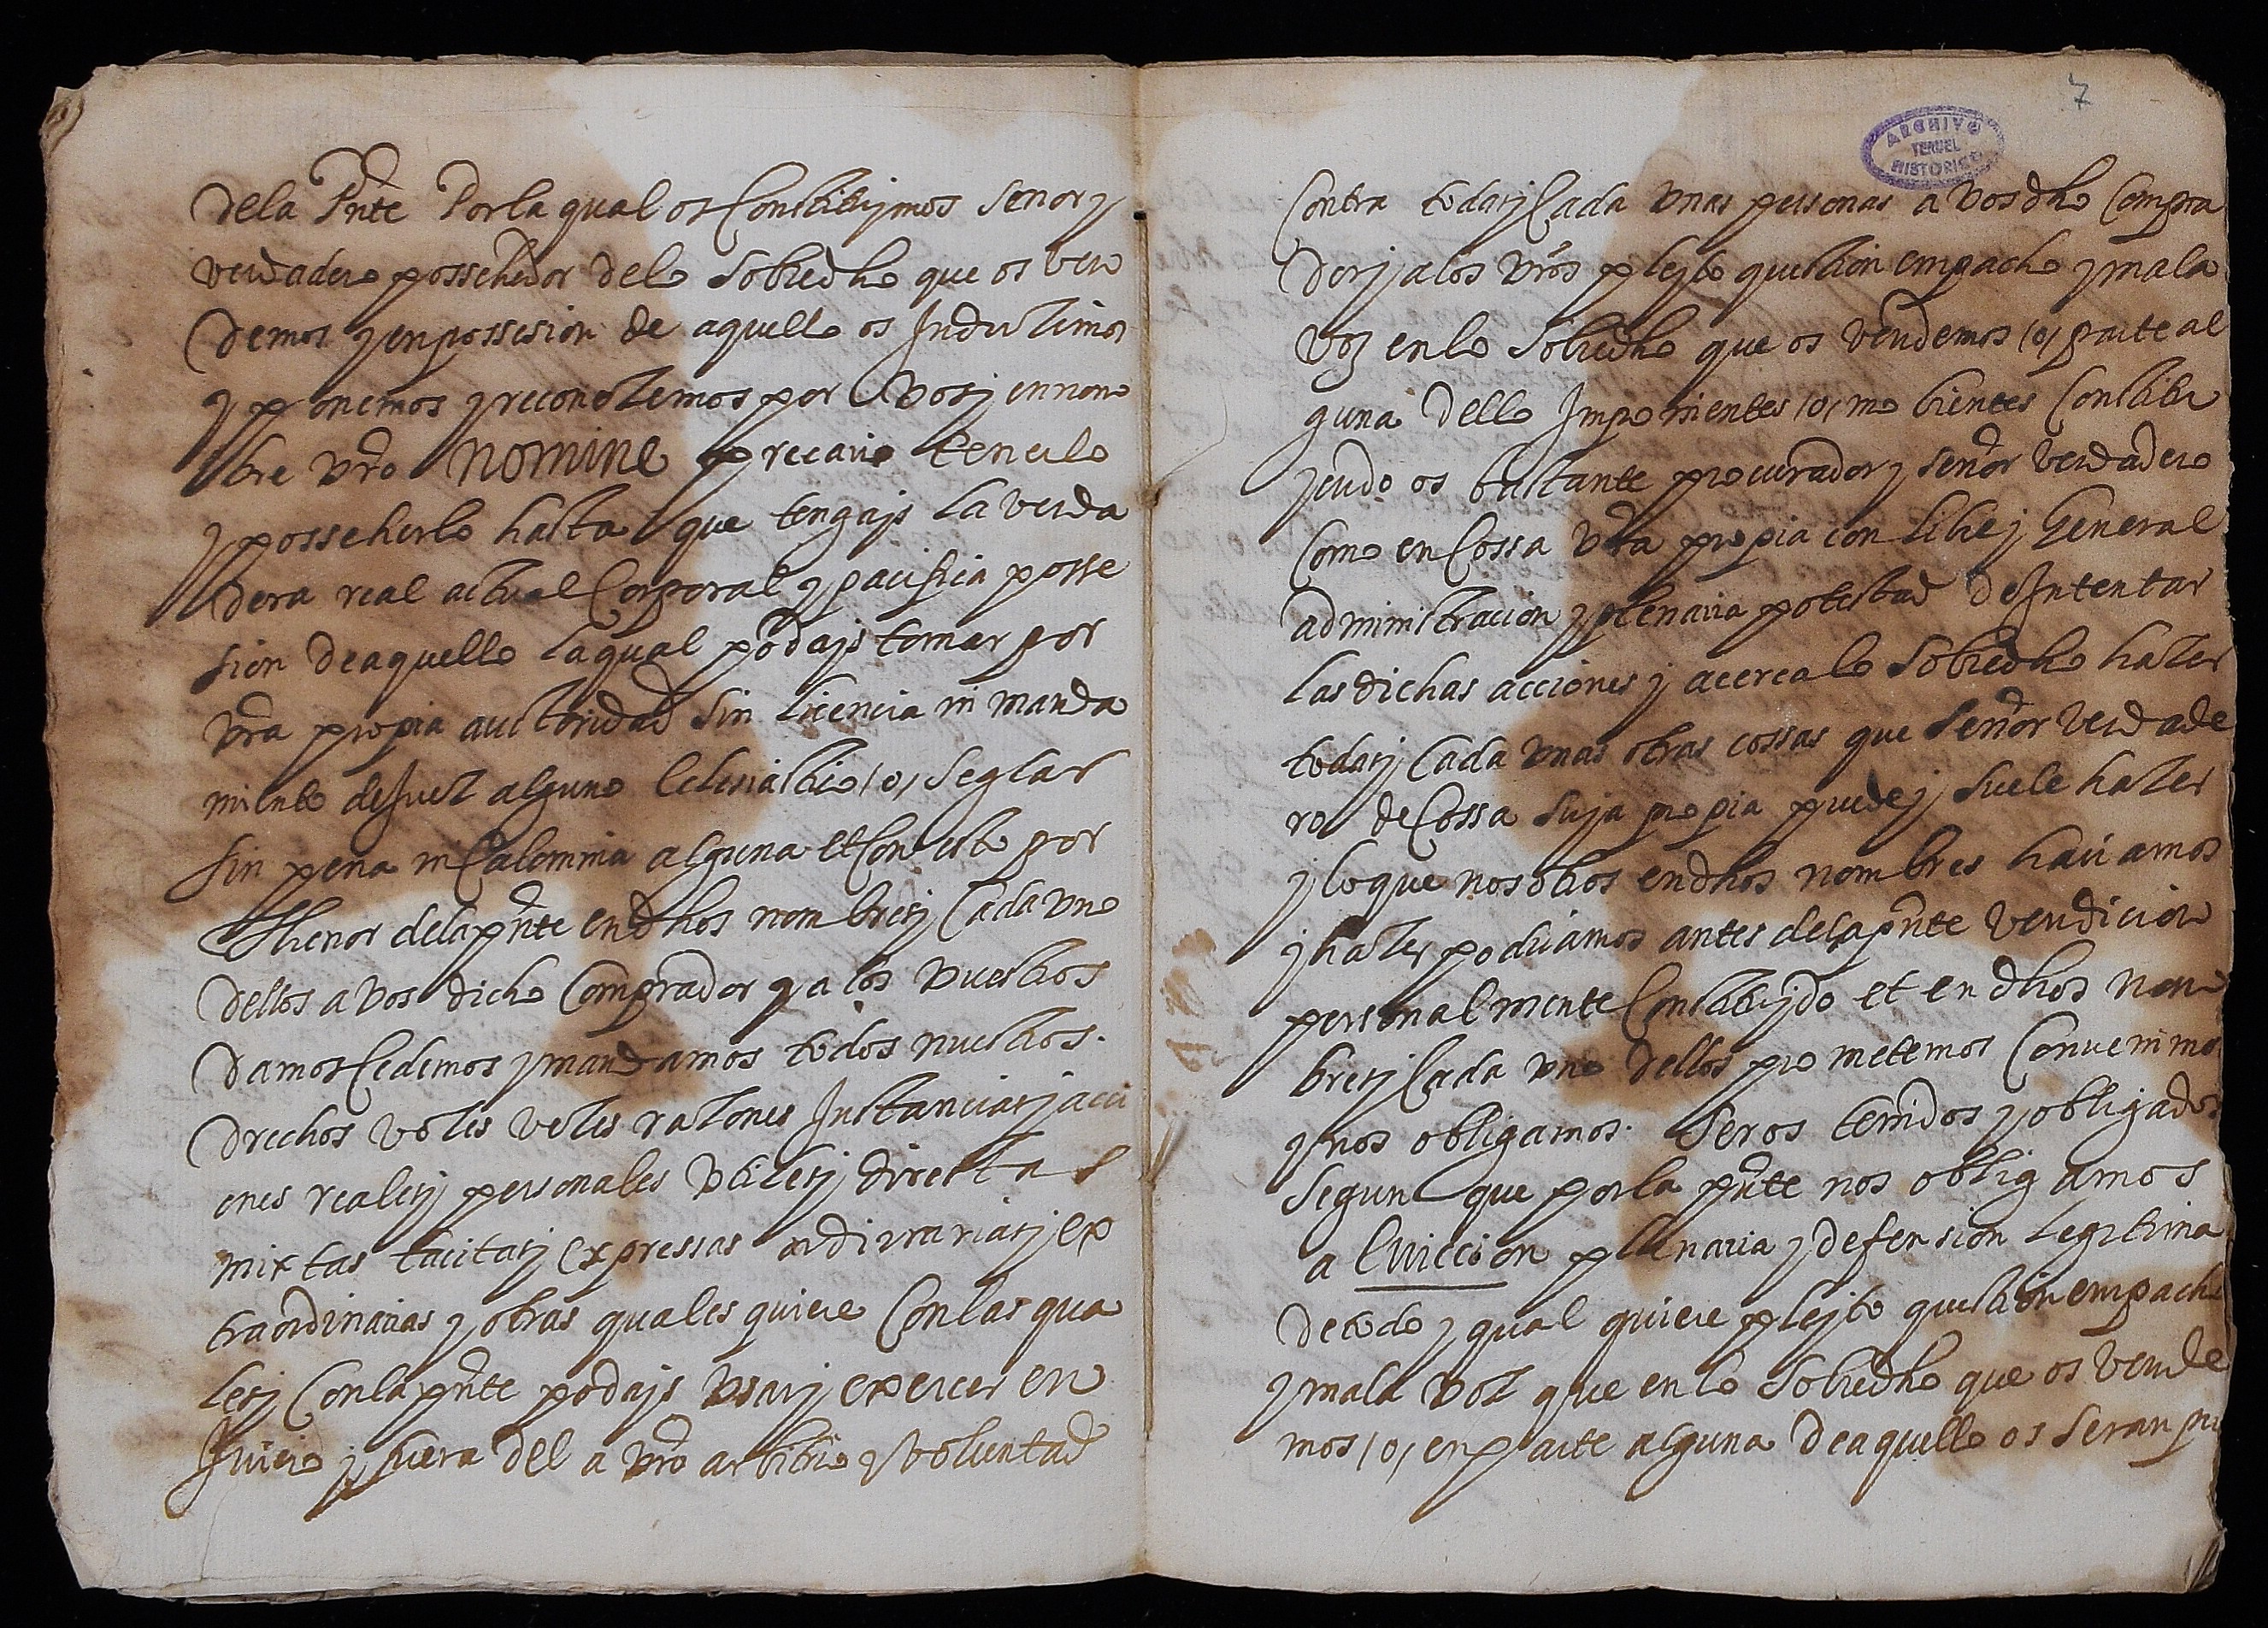 dela Pnte Por la qual os Constituymos Senor y
verdadero possehedor delo sobredho que os ven
demos y en possesion de aquello os Induzimos
y ponemos y reconozemos por Vos y en nom
bre vro nomine precario tenerlo
y posseherlo hasta que tengays la verda
dera real actual Corporal y pacifica posse
sion de aquello la qual podays tomar por
vra propia auctoridad sin licencia ni manda
miento de Juez alguno Eclesiastico /o/ seglar
sin pena ni Calomnia alguna et Con esto por
thenor dela pnte en dhos nombres y Cada uno
dellos a vos dicho Comprador y a los vuestros
damos Cedemos y mandamos todos nuestros
drechos vozes vezes razones Instancias y acci
ones reales y personales utiles y directas
mixtas tacitas y expressas ordinarias y ex
traordinarias y otras quales quiere Con las qua
les y Con la pnte podays usar y exercer en
Juicio y fuera del a vro arbitrio y voluntad
7
ARCHIVO
TERUEL
HISTORICO
Contra todas y Cada unas personas a vos dho Compra
dor y a los vros pleyto question empacho y mala
voz en lo sobredho que os vendemos /o/ parte al
guna dello Imponientes /o/ mobientes Constitu
yendo os bastante procurador y señor verdadero
Como en Cossa vra propia con libre y General
administracion y plenaria potestad de Intentar
las dichas acciones y acerca lo sobredho hazer
todas y Cada unas otras cossas que señor verdade
ro de Cossa suya propia puede y suele hazer
y lo que nosotros en dhos nombres haciamos
y hazer podiamos antes dela pnte vendicion
personalmente Constituydo et en dhos nom
bres y Cada uno dellos prometemos Convenimos
y nos obligamos seros tenidos y obligados
segun que por la pnte nos obligamos
a Eviccion plenaria y defension legitima
de todo y qual quiere pleyto question empacho
y mala voz que en lo sobredho que os vende
mos /o/ en parte alguna de aquello os seran pu